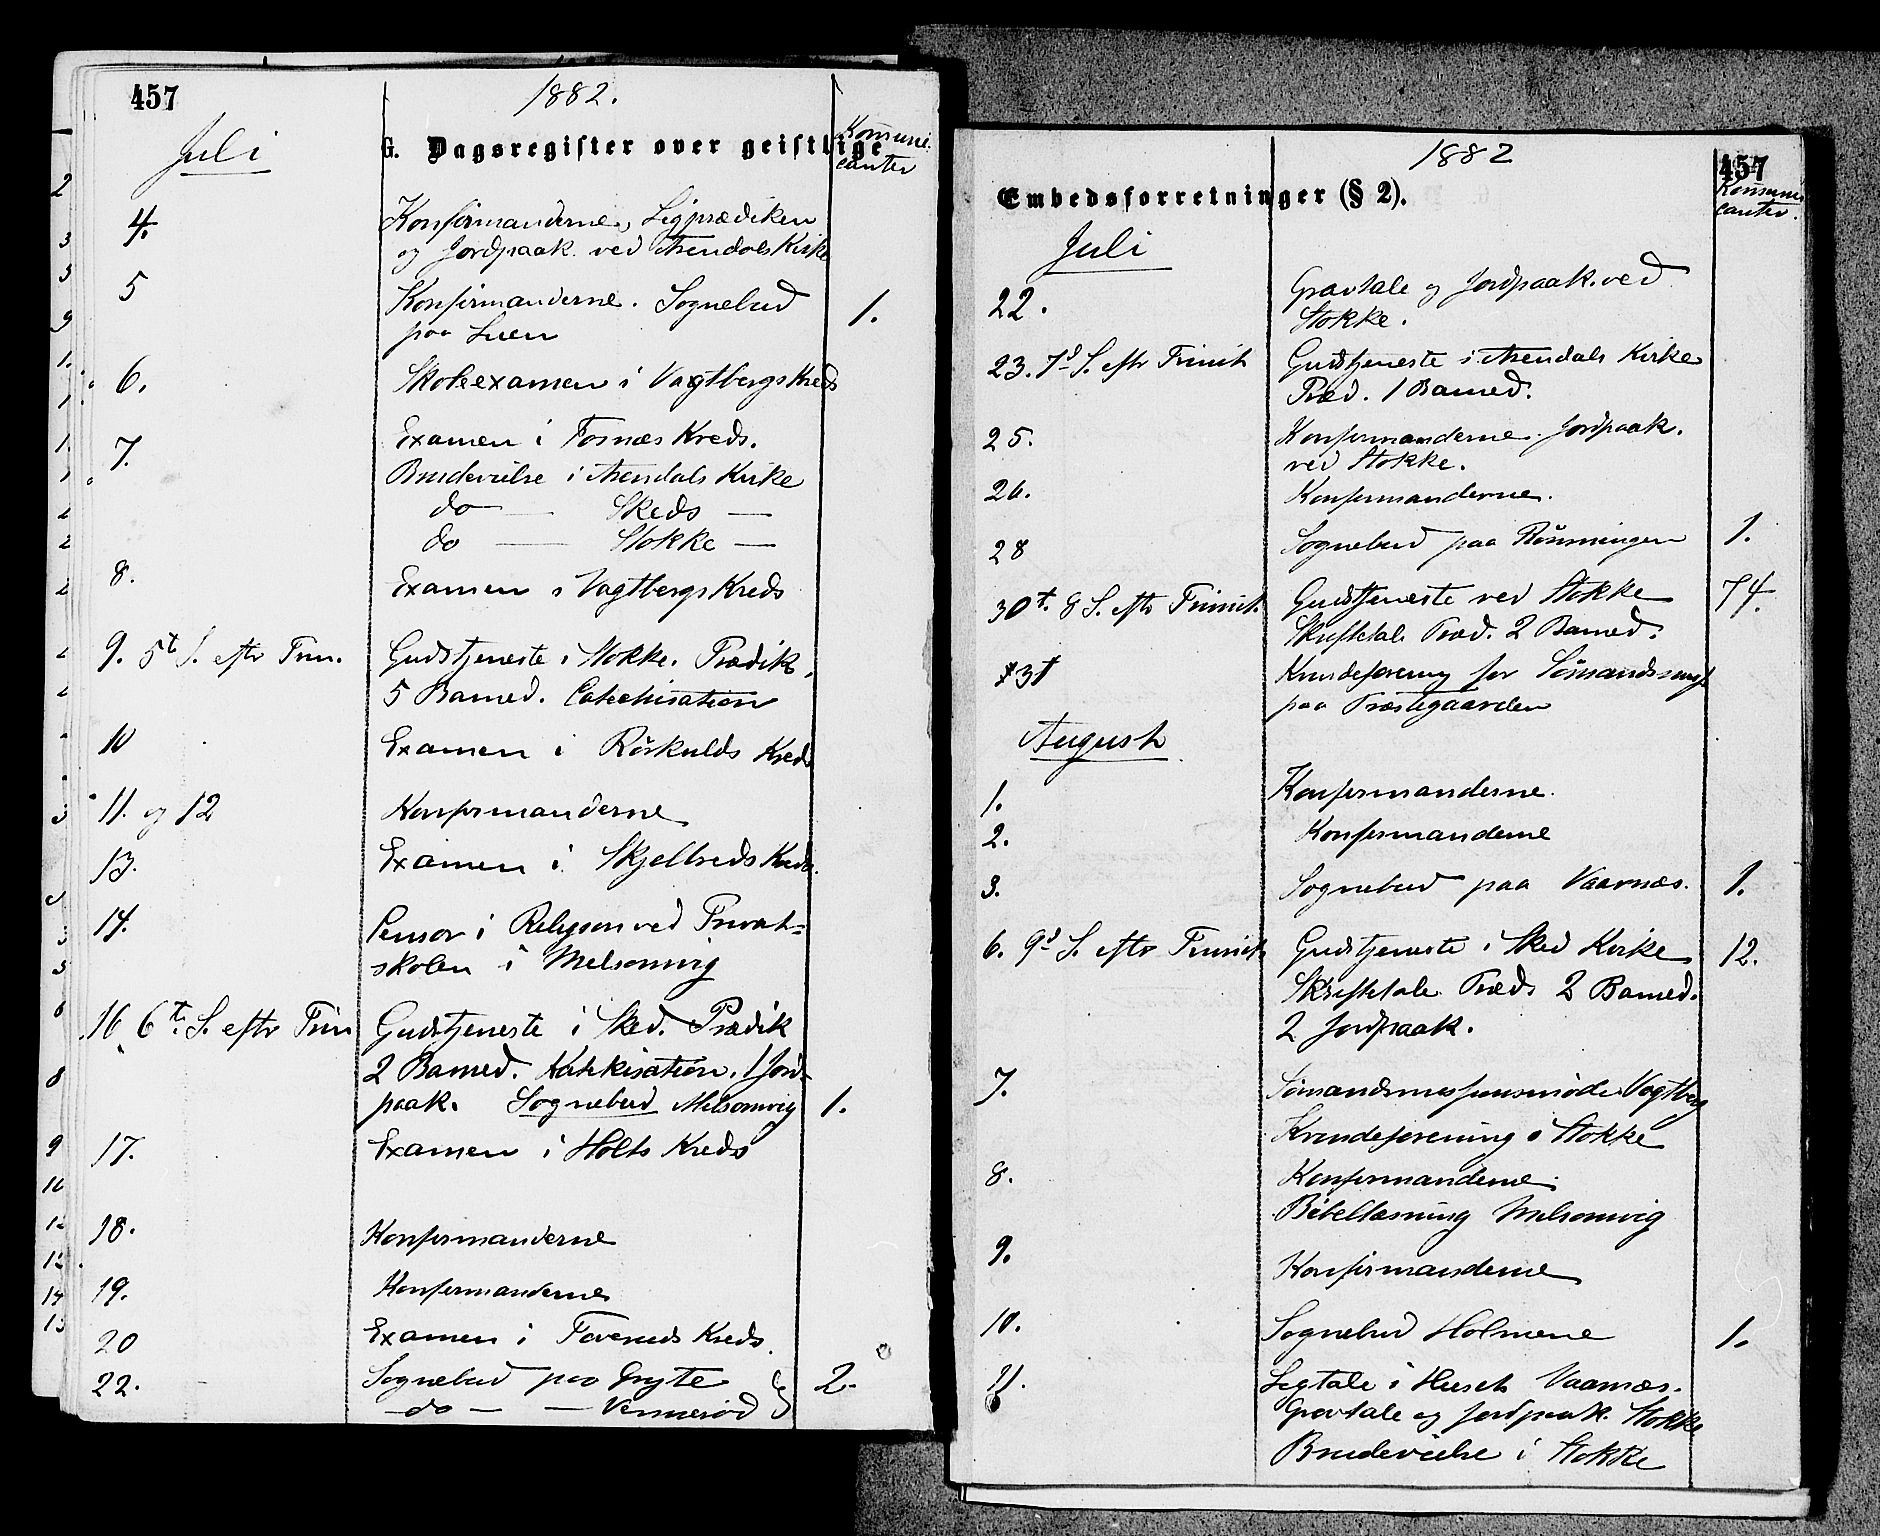 457
1882.
Juli
G. Dagsregister over geistlige
Kommuni
canter
4. Konfirmanderne, Ligprædiken
og Jordpaak. ved Arendals Kirke
5 Konfirmanderne. Sognebud 1.
paa Luen
6. Skoleexamen i Vagtbergs Kreds
7. Examen i Fosnæs Kreds.
Brudevielse i Arendals Kirke
do — Skeds —
do — Stokke —
8. Examen i Vagtbergs Kreds
9. 5t S. eftr Trin. Gudstjeneste i Stokke. Prædik.
5 Barned. Catechisation
10 Examen i Röskulds Kreds
11. og 12 Konfirmanderne
13. Examen i Skjelbreds Kreds.
14. Censor i Religion ved Privat-
skolen i Melsomvig
16 6te S. eftr Trin Gudstjeneste i Sked. Prædik
2 Barned. Katekisation. 1 Jord-
paak. Sognebud Melsomvig 1.
17. Examen i Holts Kreds
18. Konfirmanderne
19. Konfirmanderne
20 Examen i Feverids Kreds.
22. Sognebud paa Gryte 2.
— do — — Vennerød
1882
457
Kommuni
canter.
Embedsforretninger (§ 2).
Juli
22. Gravtale og Jordpaak. ved
Stokke.
23. 7d S. eftr Trinit Gudstjeneste i Arendals Kirke
Præd. 1 Barned.
25. Konfirmanderne. Jordpaak.
ved Stokke.
26. Konfirmanderne.
28 Sognebud paa Rönningen 1.
30t. 8 S. eftr Trinit. Gudstjeneste ved Stokke 74.
Skriftetale Præd. 2 Barned.
31 Kvindeforening for Sömandsmis
paa Præstegaarden
August
1. Konfirmanderne.
2. Konfirmanderne
3. Sognebud paa Vaarnæs. 1.
6. 9d S. eftr Trinit. Gudstjeneste i Sked Kirke 12.
Skriftetale Præd. 2 Barned.
2 Jordpaak.
7. Sömandsmissionsmöde Vagtberg
Kvindeforening i Stokke
8. Konfirmanderne.
Bibellæsning Melsomvig
9. Konfirmanderne
10. Sognebud Holmene 1.
11. Ligtale i Huset Vaarnæs.
Gravtale og Jordpaak. Stokke
Brudevielse i Stokke